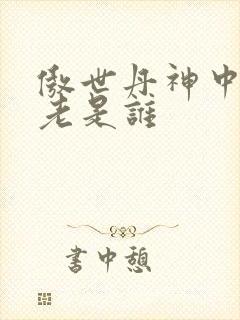 傲世丹神中
老是誰
書中憩